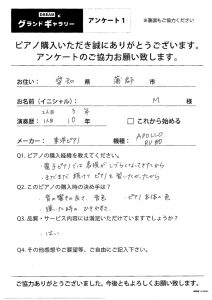 DREAM
グランドギャラリー
アンケート1
※裏面もご協力ください
ピアノ購入いただき誠にありがとうございます。
アンケートのご協力お願い致します。
お住い： 愛知 県 蒲郡 市
お名前（イニシャル）： M 様
演奏歴： 2人目 3年
1人目 10年
□ これから始める
メーカー： 東洋ピアノ 機種： APOLLO
Q1. ピアノの購入経緯を教えてください。
・電子ピアノでは表現がしづらくなってきたから
・まだまだ続けてピアノを習いたかったから
Q2. このピアノの購入時の決め手は？
・音の響きの良さ、音色 ・ピアノ本体の色
・弾いた時のかろやかさ
Q3. 品質・サービス内容には満足いただけていますでしょうか？
・はい
Q4. その他感想やご要望等、ご自由にご記入下さい。
ご協力ありがとうございました。今後ともよろしくお願い致します。